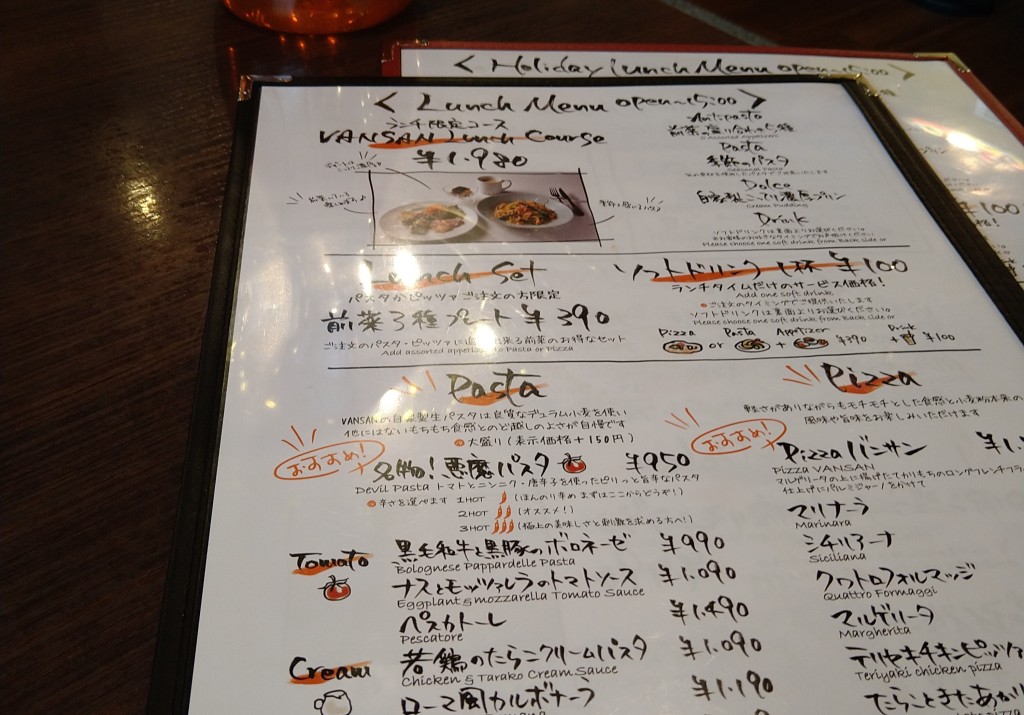 < Holiday Lunch Menu open~15:00 >
< Lunch Menu open~15:00 >
ランチ限定コース
VANSAN Lunch Course
¥1.980
Antipasto
前菜の盛り合わせ5種
Pasta
季節のパスタ
Seasonal Pasta
Dolce
Cream Pudding
Drink
ソフトドリンクは裏面よりお選びください。
Please choose one soft drink from Back side or
Lunch Set
パスタかピッツァご注文の方限定
前菜3種プレート ¥390
ご注文のパスタ・ピッツァに追加出来る前菜のお得なセット
Add assorted appetizer to Pasta or Pizza
ソフトドリンク1杯 ¥100
ランチタイムだけのサービス価格!
Add one soft drink
ご注文のタイミングでご提供いたします
ソフトドリンクは裏面よりお選びください。
Please choose one soft drink from Back side or
Pizza or Pasta + Appetizer ¥390 + Drink ¥100
Pasta
VANSANの自家製生パスタは良質なデュラム小麦を使い
他にはないもちもち食感とのど越しのよさが自慢です
大盛り(表示価格+150円)
おすすめ!
名物!悪魔パスタ ¥950
Devil Pasta トマトとニンニク・唐辛子を使ったピリっと旨辛なパスタ
辛さを選べます 1HOT (ほんのり辛め まずはここからどうぞ!)
2HOT (オススメ!)
3HOT (極上の美味しさと刺激を求める方へ!)
Tomato
黒毛和牛と黒豚のボロネーゼ ¥990
Bolognese Pappardelle Pasta
ナスとモッツァレラのトマトソース ¥1.090
Eggplant & mozzarella Tomato Sauce
ペスカトーレ ¥1.490
Pescatore
Cream
若鶏のたらこクリームパスタ ¥1.090
Chicken & Tarako Cream Sauce
ローマ風カルボナーラ ¥1.190
Pizza
軽さがありながらもモチモチとした食感と小麦粉本来の
風味や旨味をお楽しみいただけます
おすすめ!
Pizza バンサン ¥1.
Pizza VANSAN
マルゲリータの上に揚げたてかりもちのロングフレンチフラ
仕上げにパルミジャーノをかけて
マリナーラ
Marinara
シチリアーナ
Siciliana
クワトロフォルマッジ
Quattro Formaggi
マルゲリータ
Margherita
テリヤキチキンピッツァ
Teriyaki chicken pizza
たらこときたあかり